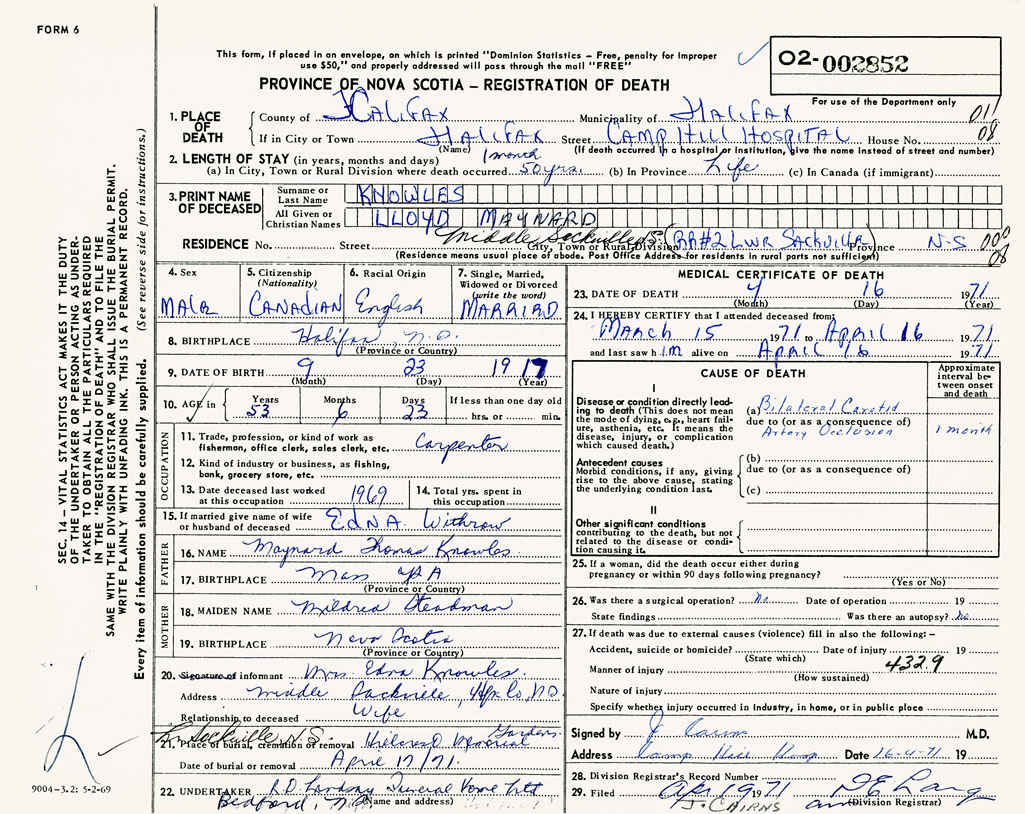 FORM 6
This form, if placed in an envelope, on which is printed "Dominion Statistics – Free, penalty for improper
use $50," and properly addressed will pass through the mail "FREE"
02-002852
PROVINCE OF NOVA SCOTIA – REGISTRATION OF DEATH
For use of the Department only
1. PLACE OF DEATH County of HALIFAX Municipality of HALIFAX 011
If in City or Town HALIFAX Street CAMP HILL HOSPITAL House No. 08
(Name) (If death occurred in a hospital or institution, give the name instead of street and number)
2. LENGTH OF STAY (in years, months and days) 1 month
(a) In City, Town or Rural Division where death occurred 50 yrs. (b) In Province Life (c) In Canada (if immigrant)
3. PRINT NAME OF DECEASED Surname or Last Name KNOWLES
All Given or Christian Names LLOYD MAYNARD
RESIDENCE No. Street Middle Sackville (RR#2 LWR SACKVILLE) City, Town or Rural Division Province N-S 000
(Residence means usual place of abode. Post Office Address for residents in rural parts not sufficient) 08
4. Sex MALE
5. Citizenship (Nationality) CANADIAN
6. Racial Origin English
7. Single, Married, Widowed or Divorced (write the word) MARRIED
8. BIRTHPLACE Halifax, N.S.
(Province or Country)
9. DATE OF BIRTH 9 23 1917
(Month) (Day) (Year)
10. AGE in Years 53 Months 6 Days 23 If less than one day old
hrs. or min.
OCCUPATION
11. Trade, profession, or kind of work as
fisherman, office clerk, sales clerk, etc. Carpenter
12. Kind of industry or business, as fishing,
bank, grocery store, etc.
13. Date deceased last worked at this occupation 1969
14. Total yrs. spent in this occupation
15. If married give name of wife
or husband of deceased EDNA Withrow
FATHER
16. NAME Maynard Thomas Knowles
17. BIRTHPLACE Mass USA
(Province or Country)
MOTHER
18. MAIDEN NAME Mildred Steadman
19. BIRTHPLACE Nova Scotia
(Province or Country)
20. Signature of informant Mrs. Edna Knowles
Address Middle Sackville, Hfx Co, N.S.
Relationship to deceased Wife
Sackville N.S.
21. Place of burial, cremation or removal Hillcrest Memorial Gardens
Date of burial or removal April 17/71.
22. UNDERTAKER Funeral Home Ltd
Bedford, N.S. (Name and address)
MEDICAL CERTIFICATE OF DEATH
23. DATE OF DEATH 4 16 1971
(Month) (Day) (Year)
24. I HEREBY CERTIFY that I attended deceased from:
March 15 1971 to April 16 1971
and last saw him alive on April 16 1971
CAUSE OF DEATH
Approximate interval between onset and death
I
Disease or condition directly leading to death (This does not mean the mode of dying, e.g., heart failure, asthenia, etc. It means the disease, injury, or complication which caused death.)
(a) Bilateral Carotid
due to (or as a consequence of)
Artery Occlusion 1 month
Antecedent causes
Morbid conditions, if any, giving rise to the above cause, stating the underlying condition last.
(b)
due to (or as a consequence of)
(c)
II
Other significant conditions
contributing to the death, but not related to the disease or condition causing it.
25. If a woman, did the death occur either during
pregnancy or within 90 days following pregnancy?
(Yes or No)
26. Was there a surgical operation? No Date of operation 19
State findings Was there an autopsy? No
27. If death was due to external causes (violence) fill in also the following:–
Accident, suicide or homicide? Date of injury 19
(State which)
Manner of injury 432.9
(How sustained)
Nature of injury
Specify whether injury occurred in industry, in home, or in public place
Signed by J Cairns M.D.
Address Camp Hill Hosp Date 16-4-71 19
28. Division Registrar's Record Number
29. Filed Apr 19 1971
J. CAIRNS (Division Registrar)
SEC. 14 – VITAL STATISTICS ACT MAKES IT THE DUTY
OF THE UNDERTAKER OR PERSON ACTING AS UNDER-
TAKER TO OBTAIN ALL THE PARTICULARS REQUIRED
IN THE "REGISTRATION OF DEATH" AND TO FILE THE
SAME WITH THE DIVISION REGISTRAR WHO SHALL ISSUE THE BURIAL PERMIT.
WRITE PLAINLY WITH UNFADING INK. THIS IS A PERMANENT RECORD.
Every item of information should be carefully supplied. (See reverse side for instructions.)
9004-3.2: 5-2-69